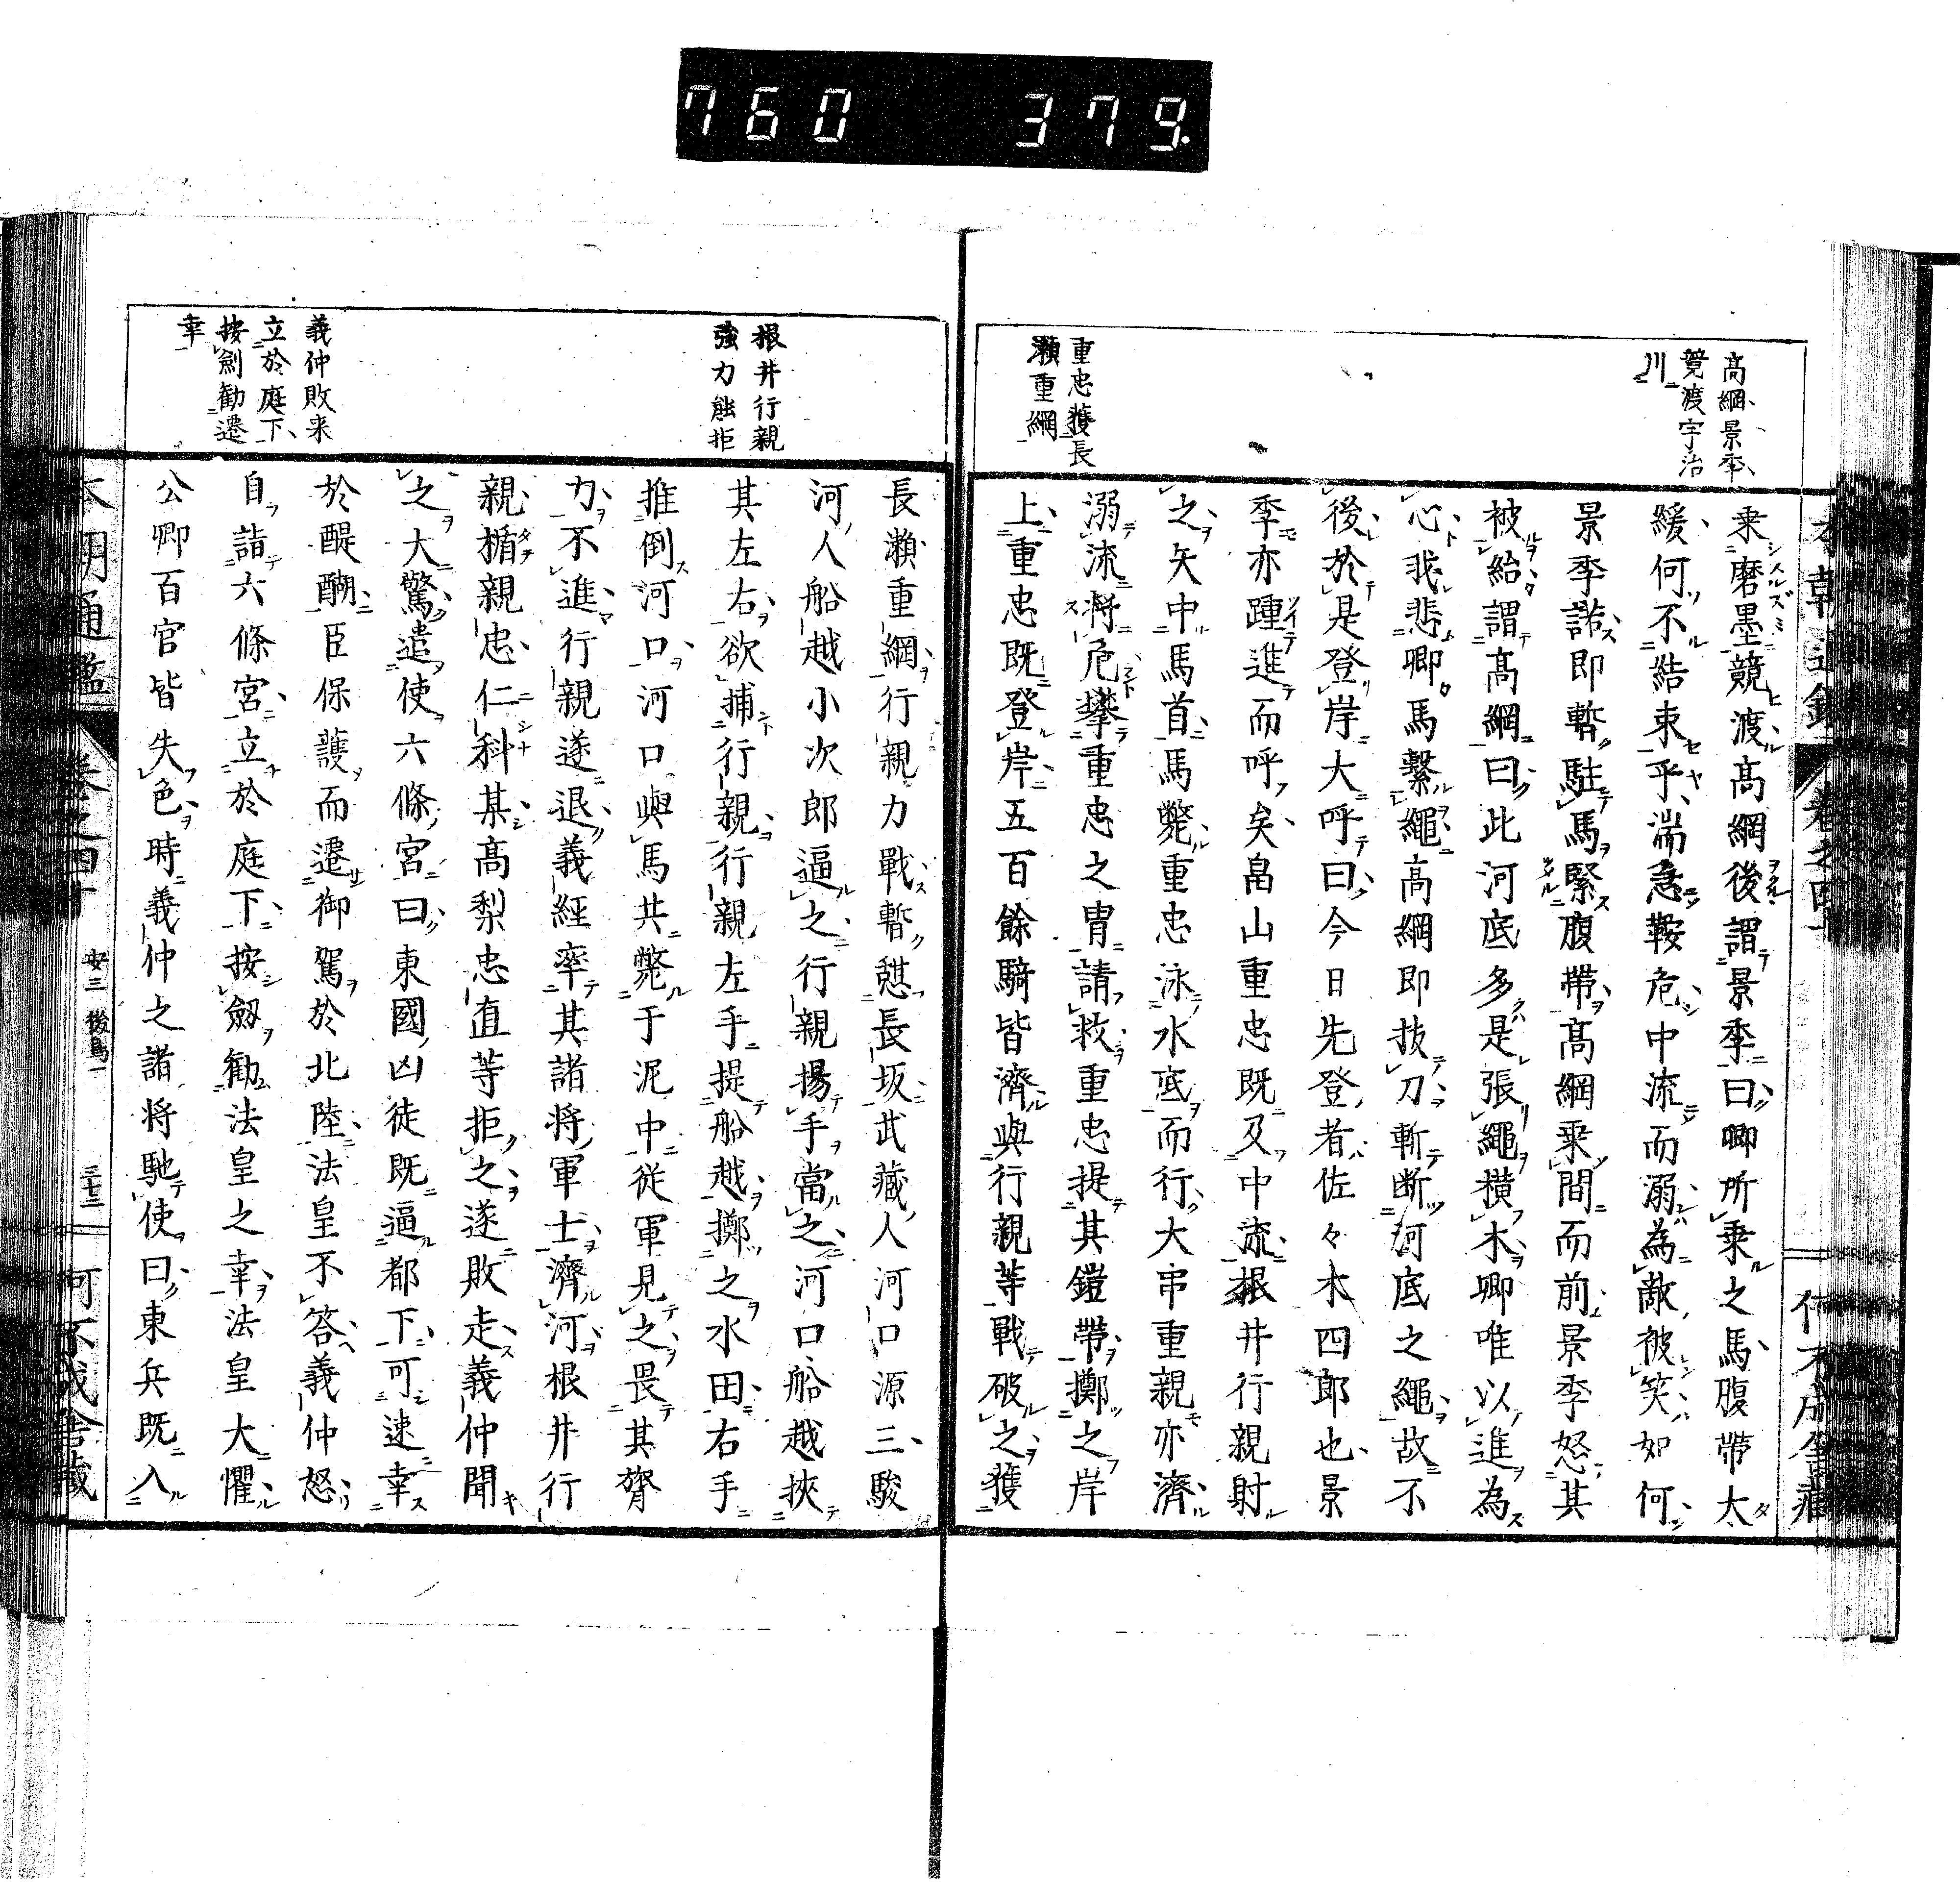 760 379.
高綱景季
競渡宇治
川
重忠獲長
瀬重綱
乗磨墨競渡高綱後謂景季曰卿所乗之馬腹帯大
緩何不結束乎湍急鞍危中流而溺為敵被笑如何
景季諾即暫駐馬緊腹帯高綱乗間而前景季怒其
被紿謂高綱曰此河底多是張繩横木卿唯以進為
心我悲卿馬繫繩高綱即抜刀斬断河底之繩故不
後於是登岸大呼曰今日先登者佐々木四郎也景
季亦踵進而呼矣畠山重忠既及中流根井行親射
之矢中馬首馬斃重忠泳水底而行大串重親亦濟
溺流将危攀重忠之冑請救重忠提其鎧帯擲之岸
上重忠既登岸五百餘騎皆濟與行親等戰破之獲
根井行親
強力能拒
義仲敗来
立於庭下
按劍勧遷
幸
長瀬重綱行親力戰暫憇長坂武藏人河口源三駿
河人船越小次郎逼之行親揚手當之河口船越挾
其左右欲捕行親行親左手提船越擲之水田右手
推倒河口河口與馬共斃于泥中從軍見之畏其膂
力不進行親遂退義經率其諸将軍士濟河根井行
親楯親忠仁科某高梨忠直等拒之遂敗走義仲聞
之大驚遣使六條宮曰東國凶徒既逼都下可速幸
於醍醐臣保護而遷御駕於北陸法皇不答義仲怒
自詣六條宮立於庭下按劔勧法皇之幸法皇大懼
公卿百官皆失色時義仲之諸将馳使曰東兵既入
本朝通鑑 卷之四十 廿三 後鳥一 三十二 何不成舎藏